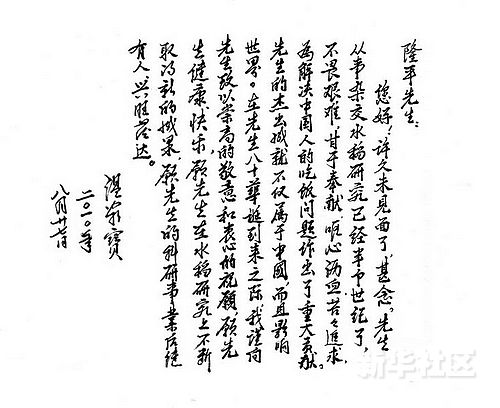 隆平先生：
您好！许久未见面了，甚念。先生
从事杂交水稻研究已经半个世纪了，
不畏艰难，甘于奉献，呕心沥血，苦苦追求，
为解决中国人的吃饭问题作出了重大贡献。
先生的杰出成就不仅属于中国，而且影响
世界。在先生八十华诞到来之际，我谨向
先生致以崇高的敬意和衷心的祝愿。愿先
生健康、快乐，愿先生在水稻研究上不断
取得新的成果，愿先生的科研事业后继
有人，兴旺发达。
温家宝
二〇一〇年
八月廿七日
新华社区